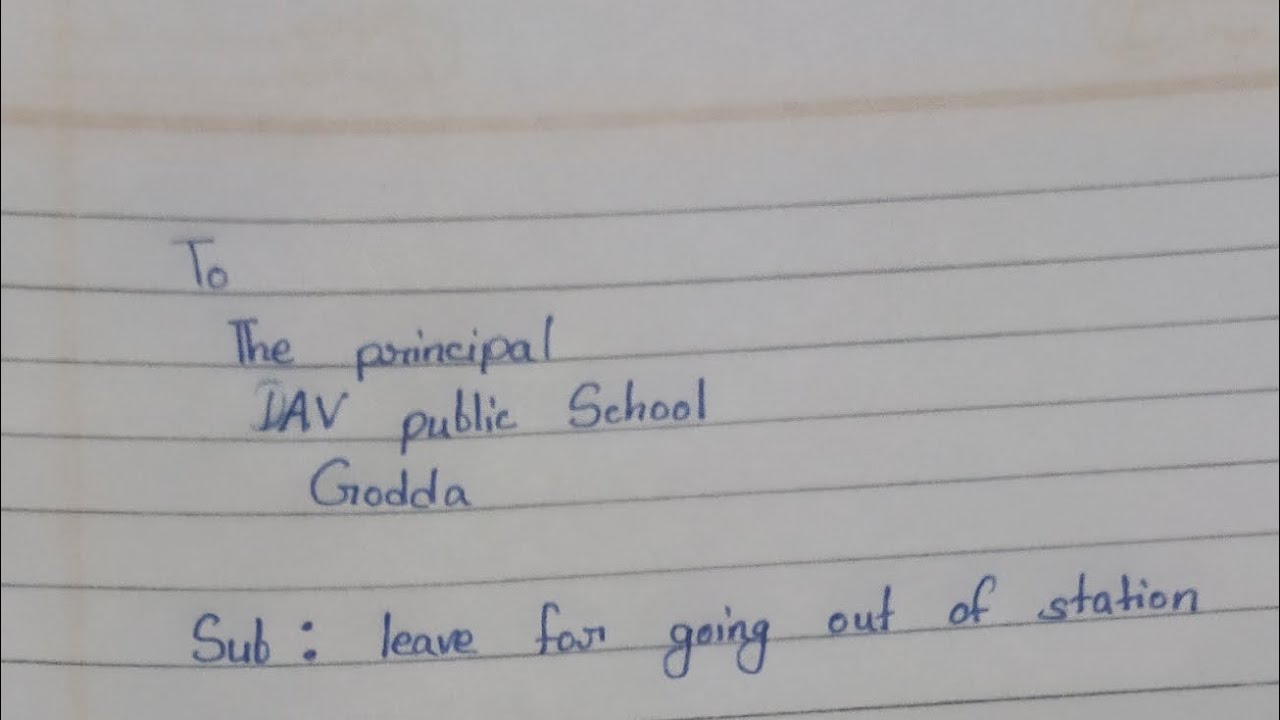 To
The principal
DAV public School
Godda
Sub : leave for going out of station